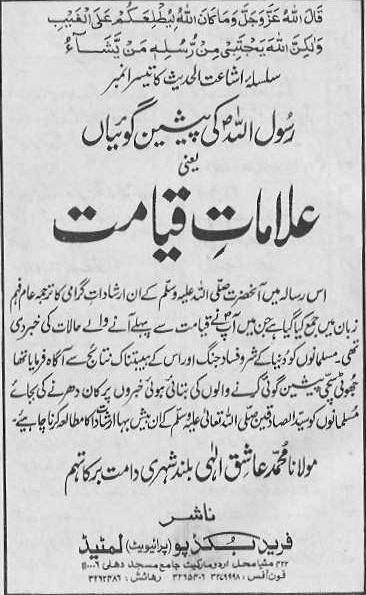 قَالَ اللهُ عَزَّوَجَلَّ وَمَا كَانَ اللهُ لِيُطْلِعَكُمْ عَلَى الْغَيْبِ
وَلٰكِنَّ اللهَ يَجْتَبِيْ مِنْ رُسُلِهٖ مَنْ يَّشَآءُ
سلسلۂ اشاعت الحدیث کا تیسرا نمبر
رسول اللہؐ کی پیشین گوئیاں
یعنی
علاماتِ قیامت
اس رسالہ میں آنحضرت صلی اللہ علیہ وسلم کے ان ارشاداتِ گرامی کا ترجمہ عام فہم
زبان میں جمع کیا گیا ہے جن میں آپؐ نے قیامت سے پہلے آنے والے حالات کی خبر دی
تھی۔ مسلمانوں کو دنیا کے شر و فساد جنگ اور اس کے ہیبتناک نتائج سے آگاہ فرمایا تھا
جھوٹی سچی پیشین گوئی کرنے والوں کی بتائی ہوئی خبروں پر کان دھرنے کی بجائے
مسلمانوں کو سید الصادقین صلی اللہ تعالیٰ علیہ وسلم کے ان بیش بہا ارشادات کا مطالعہ کرنا چاہیئے۔
مولانا محمد عاشق الٰہی بلند شہری دامت برکاتہم
ناشر
فرید بکڈپو (پرائیویٹ) لمٹیڈ
۴۲۲ مٹیا محل اردو مارکیٹ جامع مسجد دہلی ۱۱۰۰۰۶
فون آفس: ۳۲۷۹۹۹۸ ۳۲۶۵۴۰۶ رہائش: ۳۲۶۲۴۸۶